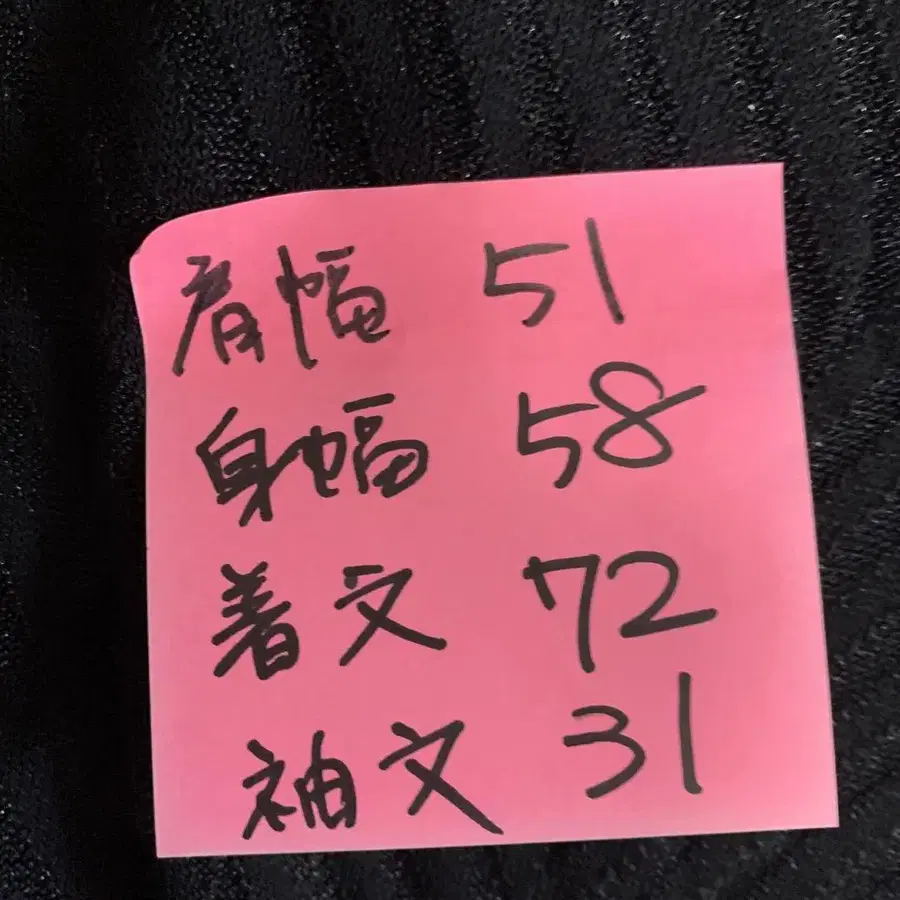 肩幅 51
身幅 58
着文 72
袖文 31